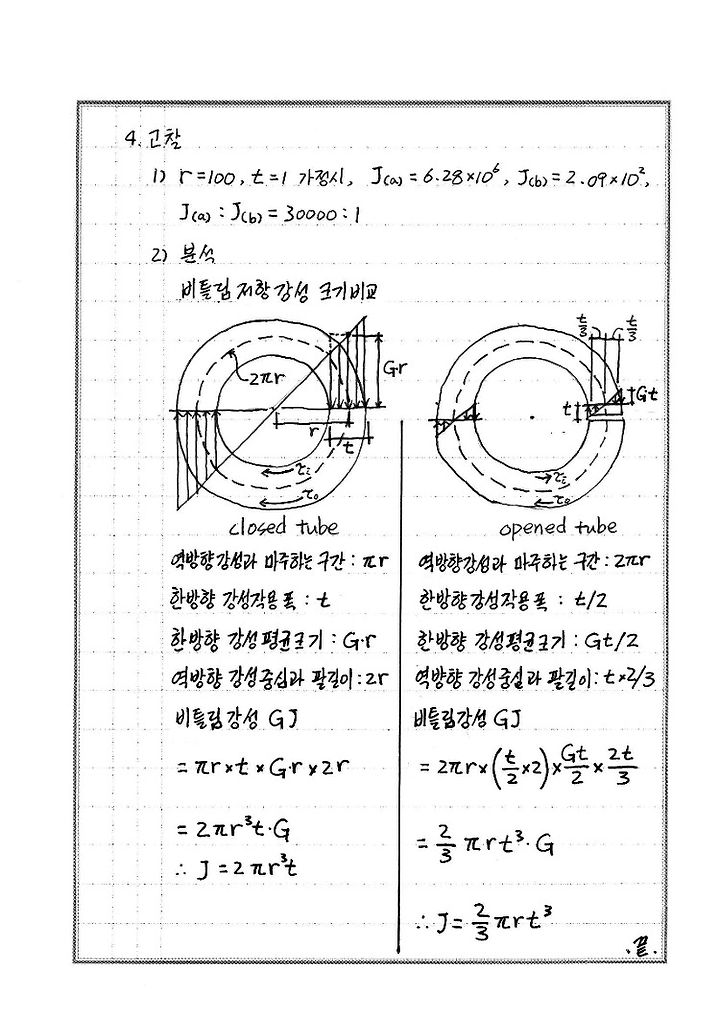 4. 고찰
1) r=100, t=1 가정시, J(a)=6.28×10⁶, J(b)=2.09×10²,
J(a) : J(b) = 30000 : 1
2) 분석
비틀림 저항강성 크기비교
2πr
r
t
Gr
τi
τo
closed tube
역방향강성과 마주하는 구간 : πr
한방향 강성작용폭 : t
한방향 강성평균크기 : G·r
역방향 강성중심과 팔길이 : 2r
비틀림강성 GJ
= πr×t×G·r×2r
= 2πr³t·G
∴ J = 2πr³t
t/3
t/3
t
Gt
τi
τo
opened tube
역방향강성과 마주하는 구간 : 2πr
한방향 강성작용폭 : t/2
한방향 강성평균크기 : Gt/2
역방향 강성중심과 팔길이 : t×2/3
비틀림강성 GJ
= 2πr×(t/2×2)×Gt/2×2t/3
= 2/3 πrt³·G
∴ J = 2/3 πrt³
.끝.